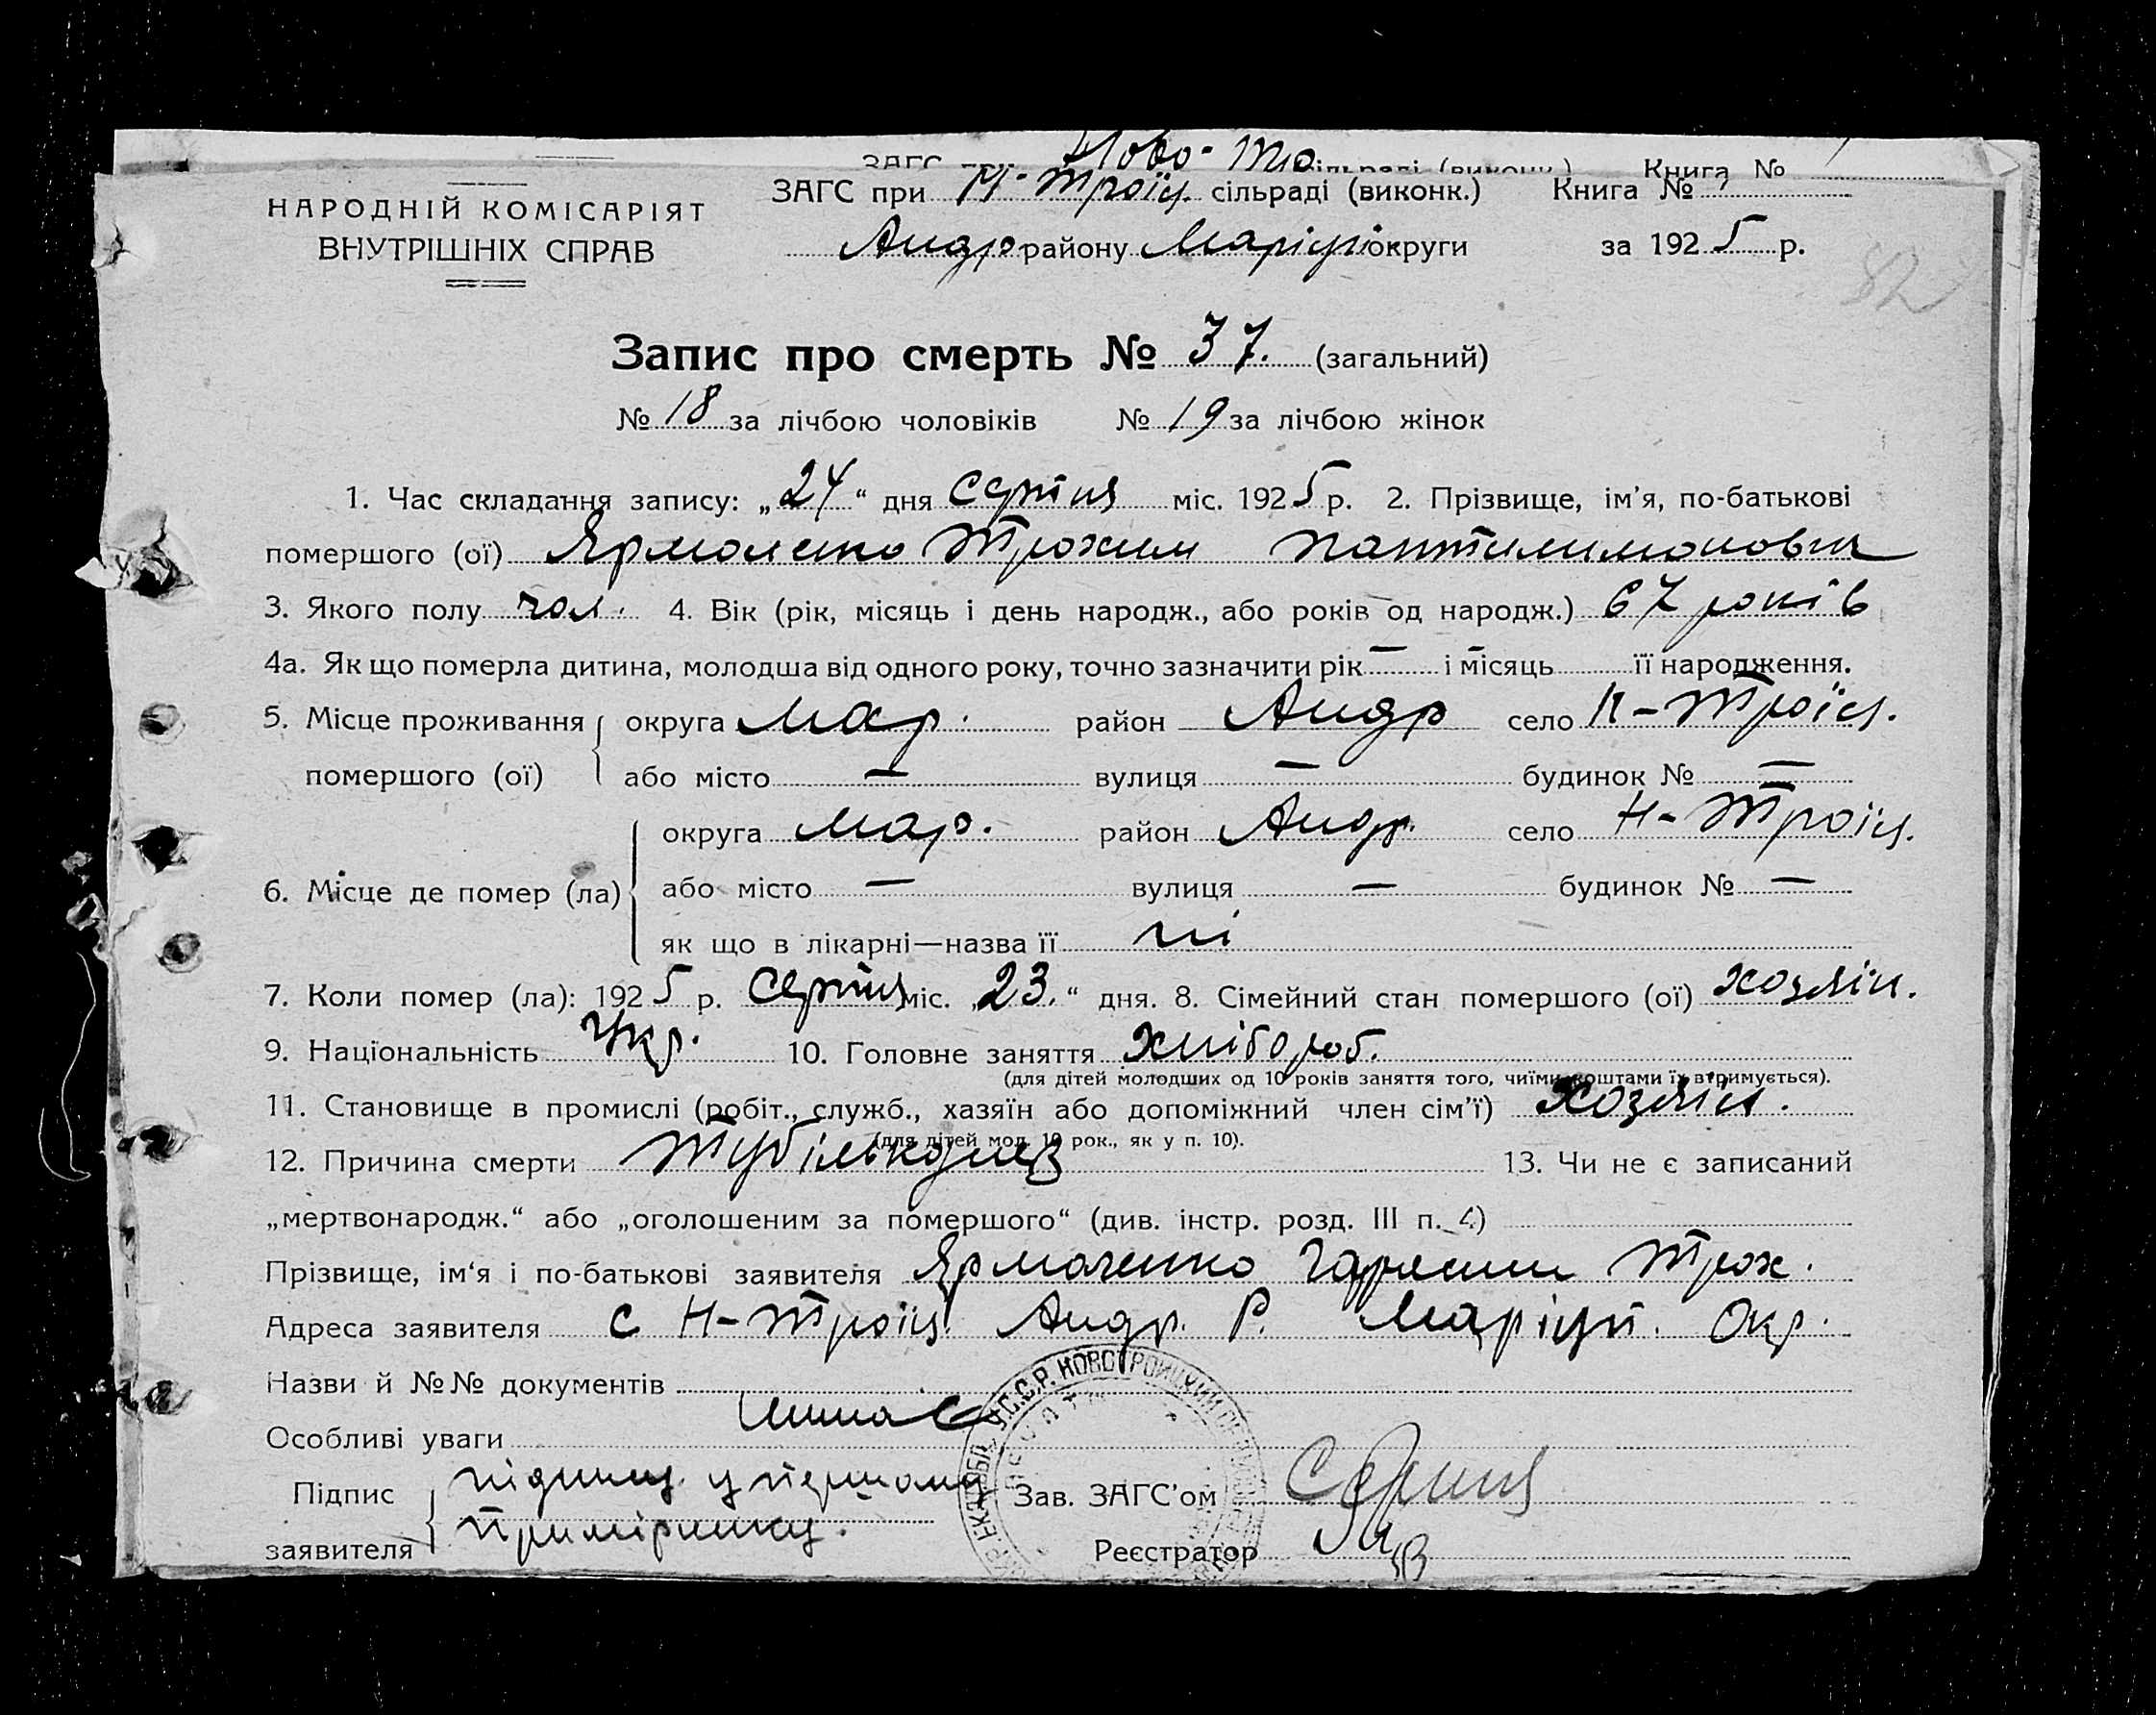 ЗАГС при Ново-Тро сільраді (виконк.) Книга №
НАРОДНІЙ КОМІСАРІЯТ
ВНУТРІШНІХ СПРАВ
ЗАГС при Н-Троїц. сільраді (виконк.) Книга №
Андр району Маріуп округи за 1925 р.
82
Запис про смерть № 37. (загальний)
№ 18 за лічбою чоловіків № 19 за лічбою жінок
1. Час складання запису: „24“ дня Серпня міс. 1925 р. 2. Прізвище, ім'я, по-батькові
помершого (ої) Ярмоленко Трохим
3. Якого полу чол. 4. Вік (рік, місяць і день народж., або років од народж.) 67 років
4а. Як що померла дитина, молодша від одного року, точно зазначити рік — і місяць — її народження.
5. Місце проживання округа Мар. район Андр село Н-Троїц.
помершого (ої) або місто — вулиця — будинок № —
округа Мар. район Андр. село Н-Троїц.
6. Місце де помер (ла) або місто — вулиця — будинок № —
як що в лікарні—назва її ні
7. Коли помер (ла): 1925 р. Серпня міс. „23.“ дня. 8. Сімейний стан помершого (ої) хозяін.
9. Національність Укр. 10. Головне заняття хлібороб.
(для дітей молодших од 10 років заняття того, чиїми коштами їх втримується).
11. Становище в промислі (робіт., служб., хазяїн або допоміжний член сім'ї) хозяін.
(для дітей мол. 10 рок., як у п. 10).
12. Причина смерти 13. Чи не є записаний
„мертвонародж.“ або „оголошеним за помершого“ (див. інстр. розд. III п. 4)
Прізвище, ім'я і по-батькові заявителя Ярмоленко Трох.
Адреса заявителя с Н-Троїц. Андр. Р. Маріуп. Окр.
Назви й №№ документів
Особливі уваги
Підпис підпис у першому
заявителя примірнику.
У.С.С.Р. НОВОТРОИЦКИЙ
Зав. ЗАГС'ом
Реєстратор